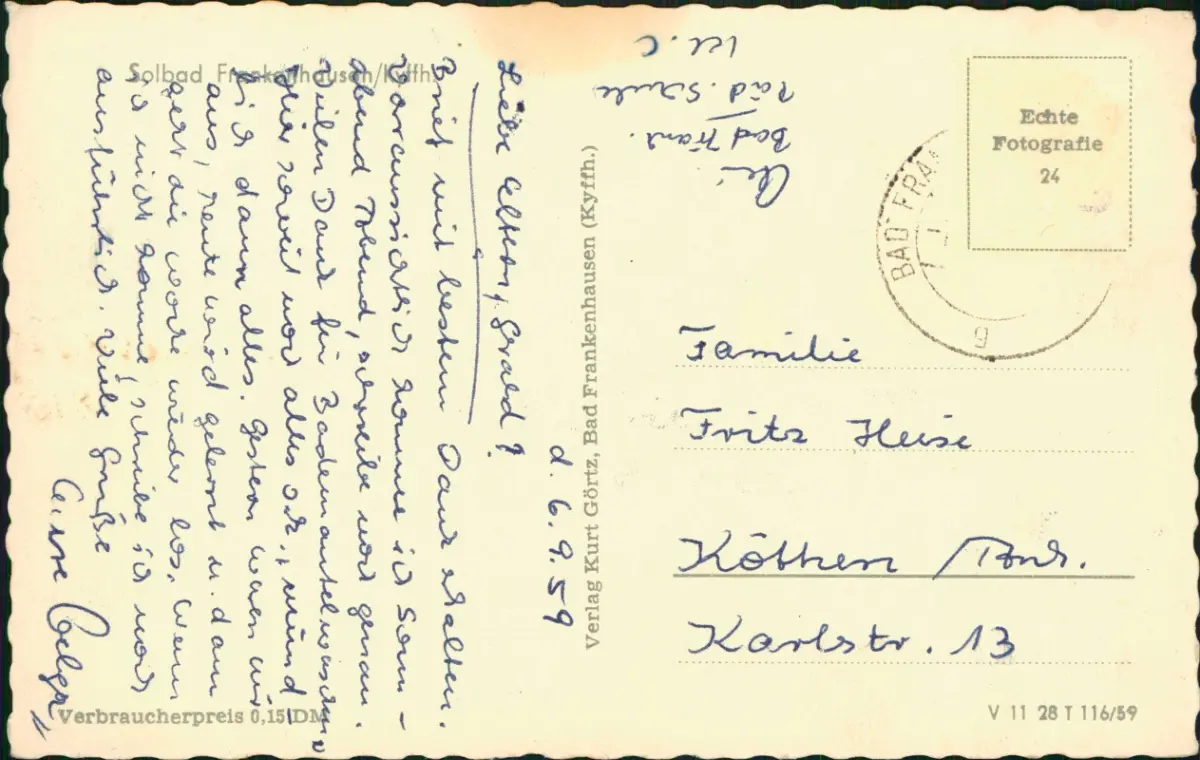 Solbad Frankenhausen/Kyffh.
d. 6.9.59
Liebe Eltern, Gerald!
Brief mit bestem Dank erhalten.
Voraussichtlich komme ich Sonn-
abend Abend, schreibe noch genau.
Vielen Dank für Bademantelwaschen,
hier soweit noch alles o.k., münd-
lich dann alles. Gestern waren wir
aus, heute wird gelernt u. dann
geht die Woche wieder los. Wenn
ich nicht komme, schreibe ich noch
ausführlich. Viele Grüße
Verbraucherpreis 0,15 DM
Verlag Kurt Görtz, Bad Frankenhausen (Kyffh.)
Bad Frank.
Päd. Schule
Kl. C
Echte
Fotografie
24
BAD FRA
g
Familie
Fritz Heise
Köthen /Anh.
Karlstr. 13
V 11 28 T 116/59